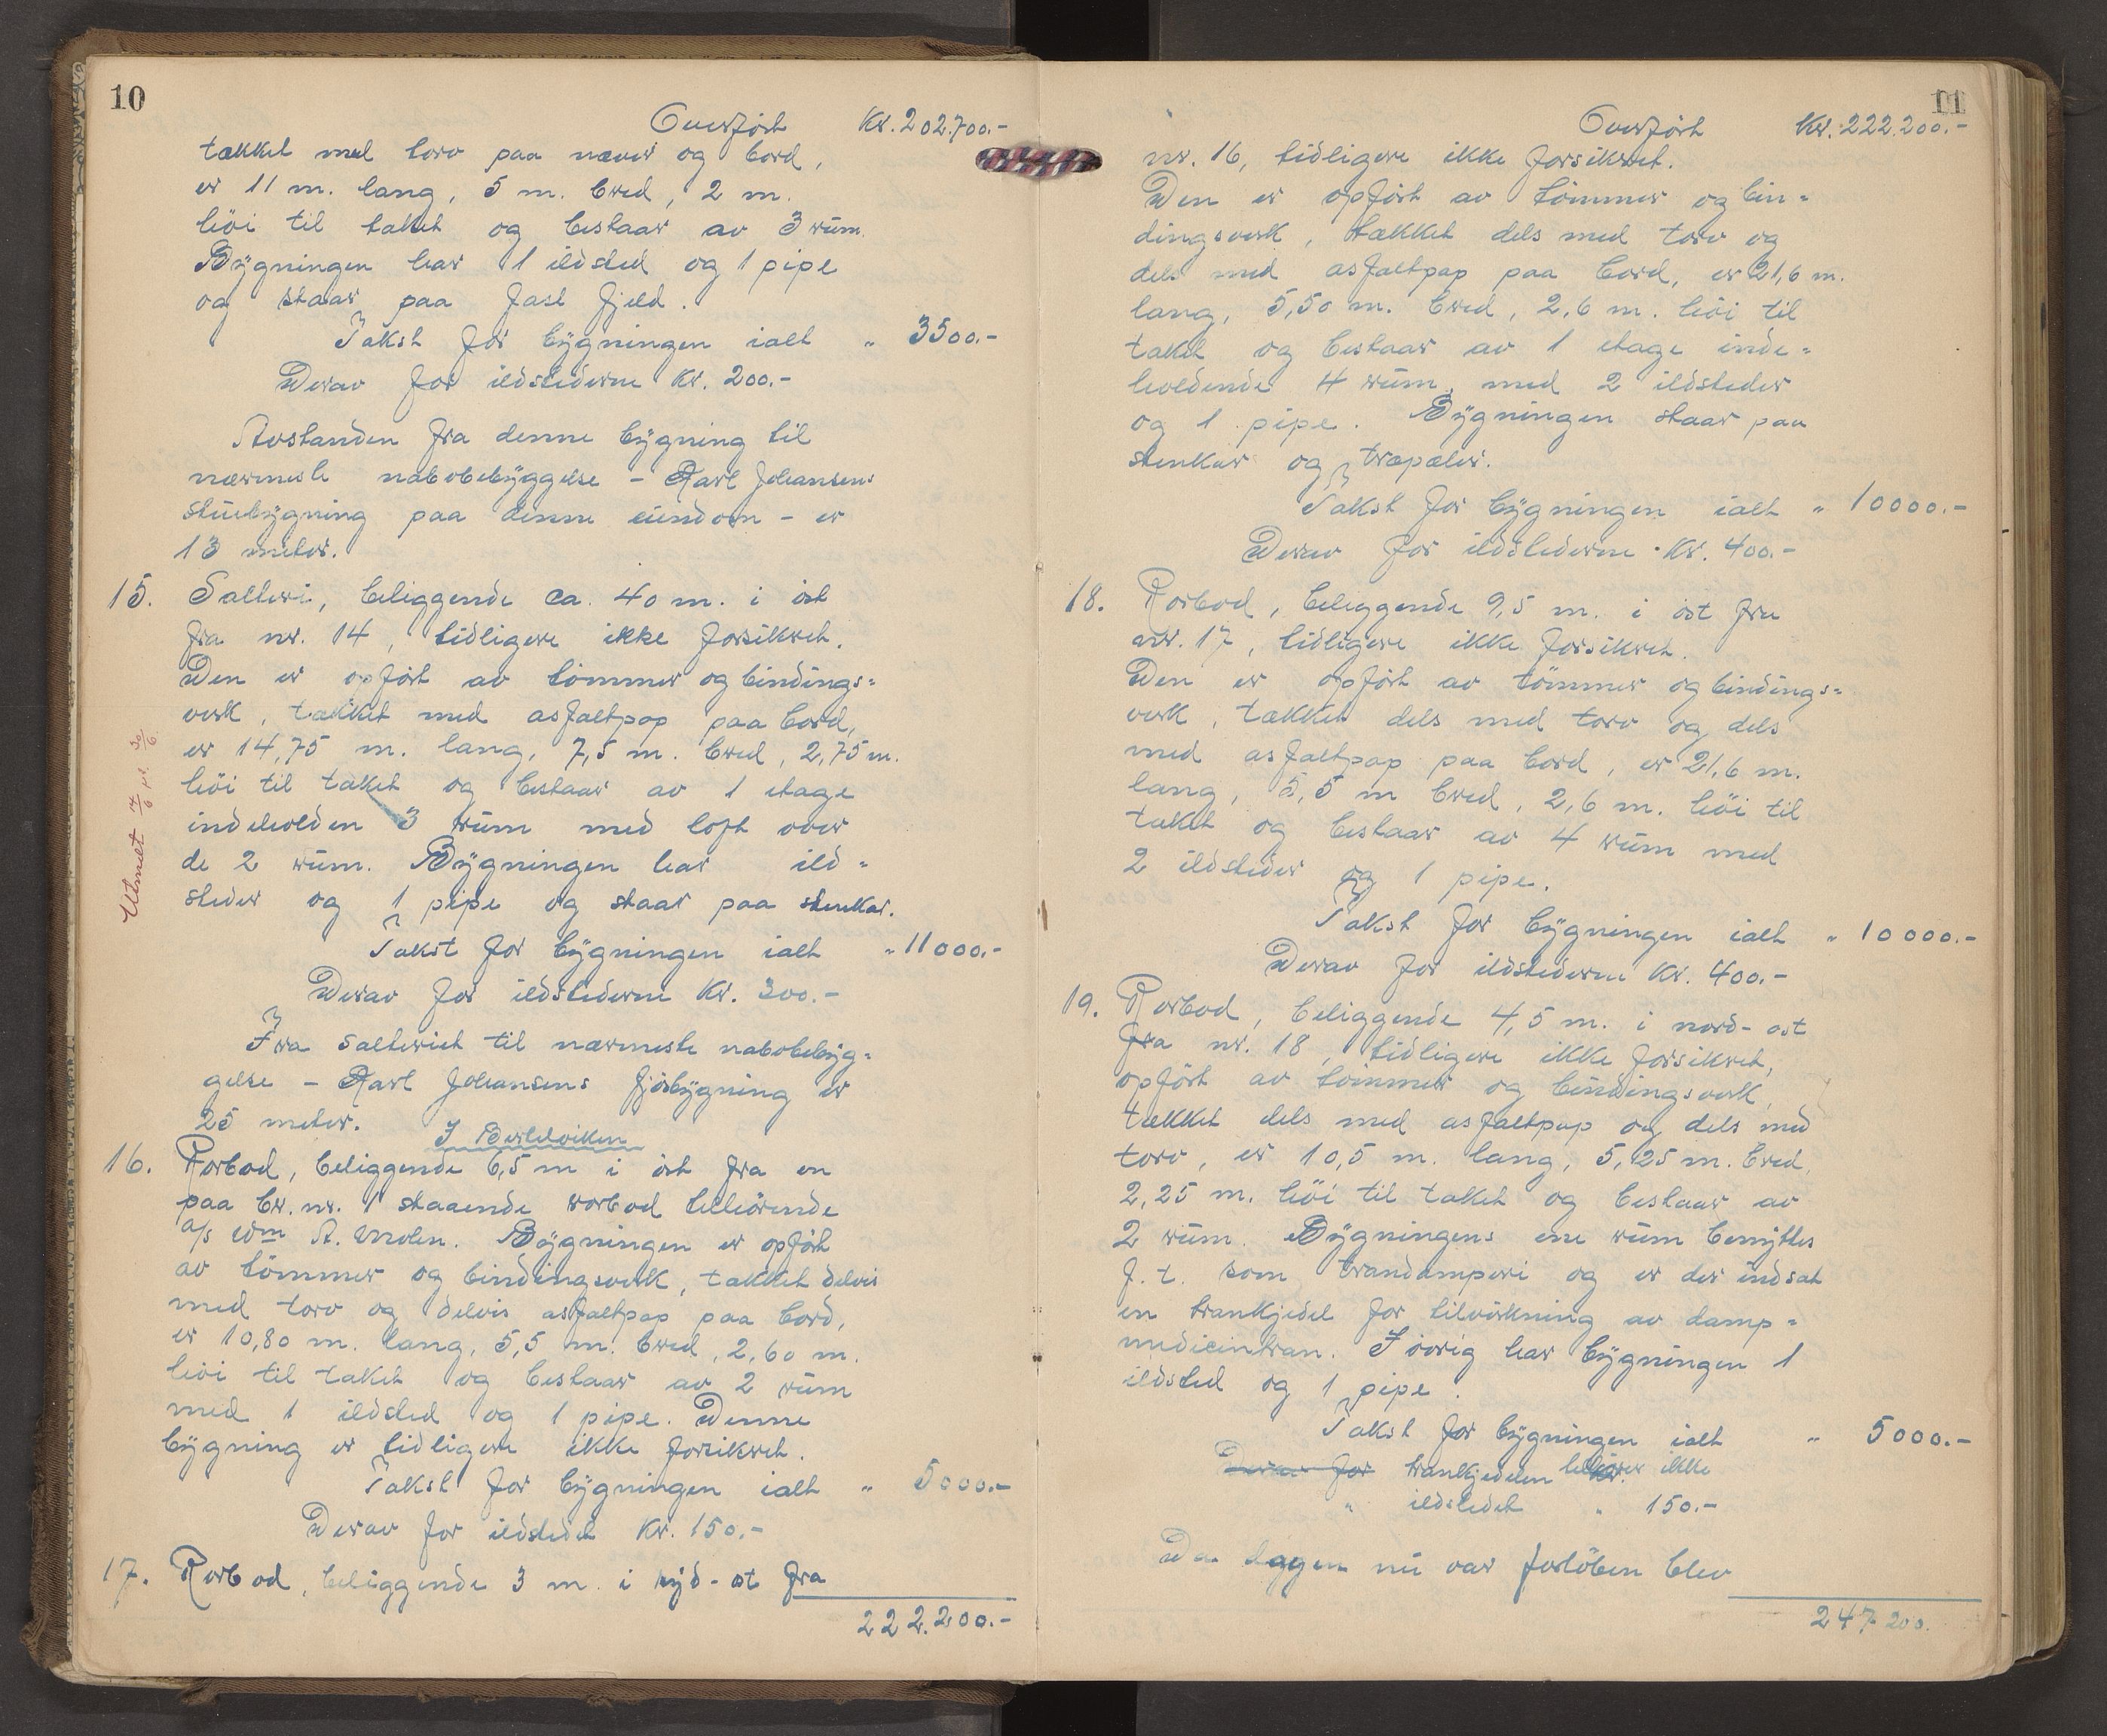 10
Overført Kr. 202.700.-
tækket med torv paa næver og bord,
er 11 m. lang, 5 m. bred, 2 m.
høi til taket og bestaar av 3 rum.
Bygningen har 1 ildsted og 1 pipe
og staar paa fast fjeld.
Takst for bygningen ialt " 3500.-
Derav for ildstederne Kr. 200.-
Avstanden fra denne bygning til
nærmeste nabobebyggelse - Karl Johansens
stuebygning paa denne eiendom - er
13 meter.
15. Salteri, beliggende ca. 40 m. i øst
fra nr. 14, tidligere ikke forsikret.
Den er opført av tømmer og bindings=
verk, tækket med asfaltpap paa bord,
er 14,75 m. lang, 7,5 m. bred, 2,75 m.
høi til taket og bestaar av 1 etage
indeholden 3 rum med loft over
de 2 rum. Bygningen har ild=
steder og 1 pipe og staar paa stenkar.
Takst for bygningen ialt " 11000.-
Derav for ildstederne Kr. 300.-
Fra salteriet til nærmeste nabobebyg=
gelse - Karl Johansens fjøsbygning er
25 meter.
I Berlevikken
16. Rorbod, beliggende 6,5 m i øst fra en
paa br. nr. 1 staaende rorbod tilhørende
a/s Wm A. Molen. Bygningen er opført
av tømmer og bindingsverk, tækket delvis
med torv og delvis asfaltpap paa bord,
er 10,80 m. lang, 5,5 m. bred, 2,60 m.
høi til taket og bestaar av 2 rum
med 1 ildsted og 1 pipe. Denne
bygning er tidligere ikke forsikret.
Takst for bygningen ialt " 5000.-
Derav for ildstedet Kr. 150.-
17. Rorbod, beliggende 3 m. i syd-øst fra
222.200.-
Utmelt
11
Overført Kr. 222.200.-
nr. 16, tidligere ikke forsikret.
Den er opført av tømmer og bin=
dingsverk, tækket dels med torv og
dels med asfaltpap paa bord, er 21,6 m.
lang, 5,50 m. bred, 2,6 m. høi til
taket og bestaar av 1 etage inde=
holdende 4 rum, med 2 ildsteder
og 1 pipe. Bygningen staar paa
stenkar og træpæler.
Takst for bygningen ialt " 10000.-
Derav for ildstederne Kr. 400.-
18. Rorbod, beliggende 9,5 m. i øst fra
nr. 17, tidligere ikke forsikret.
Den er opført av tømmer og bindings=
verk, tækket dels med torv og dels
med asfaltpap paa bord, er 21,6 m.
lang, 5,5 m bred, 2,6 m. høi til
taket og bestaar av 4 rum med
2 ildsteder og 1 pipe.
Takst for bygningen ialt " 10000.-
Derav for ildstederne Kr. 400.-
19. Rorbod, beliggende 4,5 m. i nord-øst
fra nr. 18, tidligere ikke forsikret,
opført av tømmer og bindingsverk,
tækket dels med asfaltpap og dels med
torv, er 10,5 m. lang, 5,25 m. bred,
2,25 m. høi til taket og bestaar av
2 rum. Bygningens ene rum benyttes
f. t. som trandamperi og er der indsat
en trankjedel for tilvirkning av damp=
medicintran. I øvrig har bygningen 1
ildsted og 1 pipe.
Takst for bygningen ialt " 5000.-
Derav for trankjedelen tilhører ikke
" ildstedet " 150.-
Da dagen nu var forløben blev
247.200.